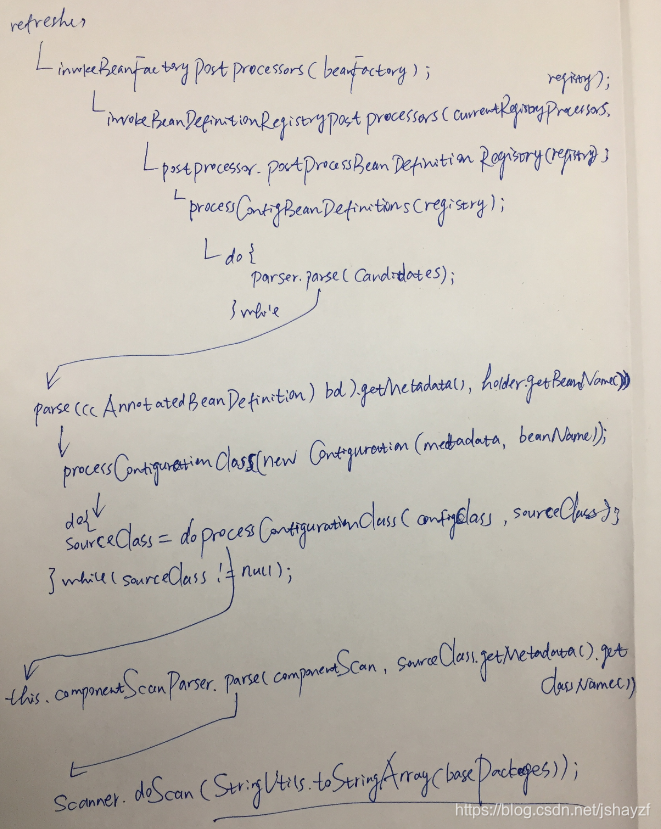 refresh()
invokeBeanFactoryPostProcessors(beanFactory);
invokeBeanDefinitionRegistryPostProcessors(currentRegistryProcessors, registry);
postProcessor.postProcessBeanDefinitionRegistry(registry);
processConfigBeanDefinitions(registry);
do {
Parser.parse(candidates);
}while
parse(((AnnotatedBeanDefinition) bd).getMetadata(), holder.getBeanName()))
processConfigurationClass(new Configuration(metadata, beanName));
do{
sourceClass = doProcessConfigurationClass(configClass, sourceClass);
}while(sourceClass != null);
this.componentScanParser.parse(componentScan, sourceClass.getMetadata().get
className())
Scanner.doScan(StringUtils.toStringArray(basePackages));
https://blog.csdn.net/jshayzf